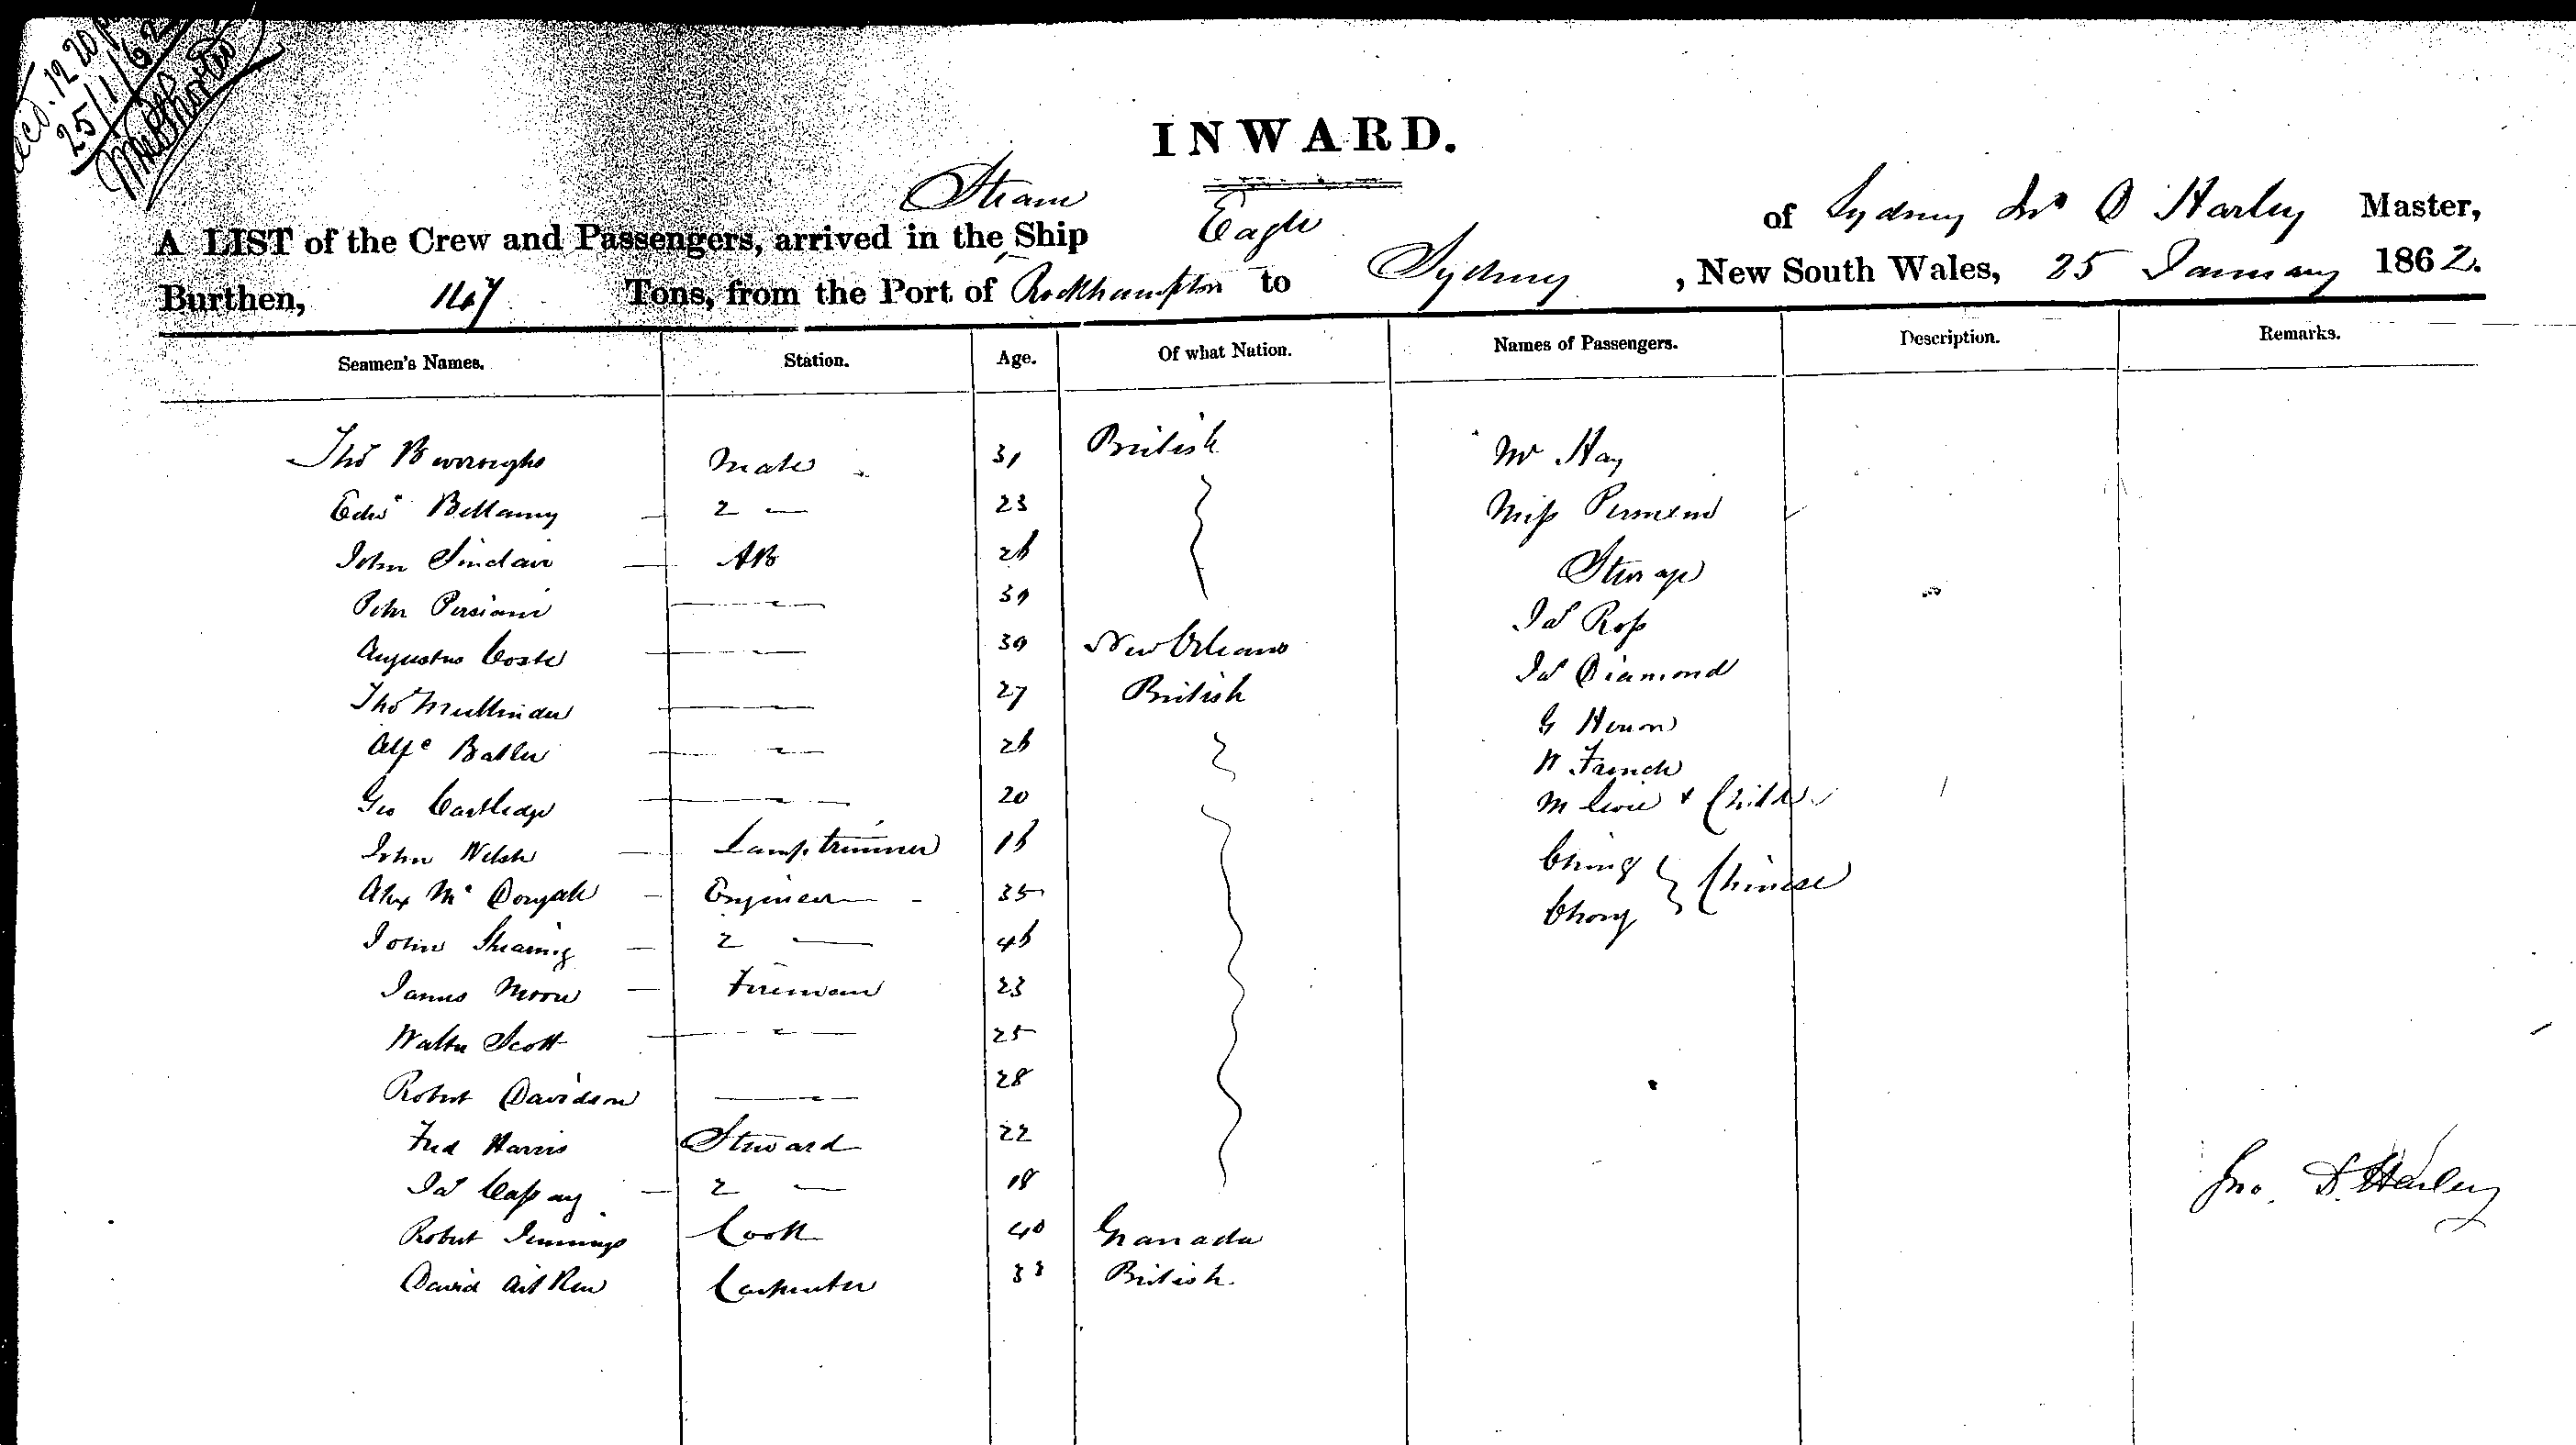 Recd. 12 20
25/1/62
INWARD.
Steam
A LIST of the Crew and Passengers, arrived in the Ship Eagle of Sydney Jno D Harley Master,
Burthen, 147 Tons, from the Port of Rockhampton to Sydney, New South Wales, 25 January 1862.
Seamen's Names. Station. Age. Of what Nation. Names of Passengers. Description. Remarks.
Thos Burroughs Mate 31 British Mr Hay
Edwd Bellamy 2 — 23 Miss
John Sinclair AB 26 Steerage
Peter 39 Jas Ross
Augustus Coste 39 New Orleans Jas Diamond
Thos Mullinder 27 British G Heron
Alf Butler 26 W French
Geo Cartledge 20 M & Child
John Welsh Lamp trimmer 16 Ching } Chinese
Alex Mc Engineer 35 Chong
John 2 — 46
James Moore Fireman 23
Walter Scott 25
Robert Davidson 28
Fred Harris Steward 22
Jas Cassay 2 — 18
Jno. D. Harley
Robert Jennings Cook 40 Granada
David Aitken Carpenter 33 British.